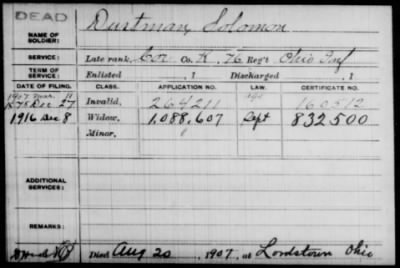 DEAD
NAME OF SOLDIER: Dustman, Solomon
SERVICE: Late rank, Cor Co. K, 76 Reg't Ohio Inf
TERM OF SERVICE: Enlisted , 1 Discharged , 1
DATE OF FILING. CLASS. APPLICATION NO. LAW. CERTIFICATE NO.
1907 Mar. 11
1878 Dec 27 Invalid, 264211 160512
1916 Dec 8 Widow, 1,088,607 Sept 832500
Minor, "
ADDITIONAL SERVICES:
REMARKS:
Died Aug 20, 1907, at Lordstown Ohio